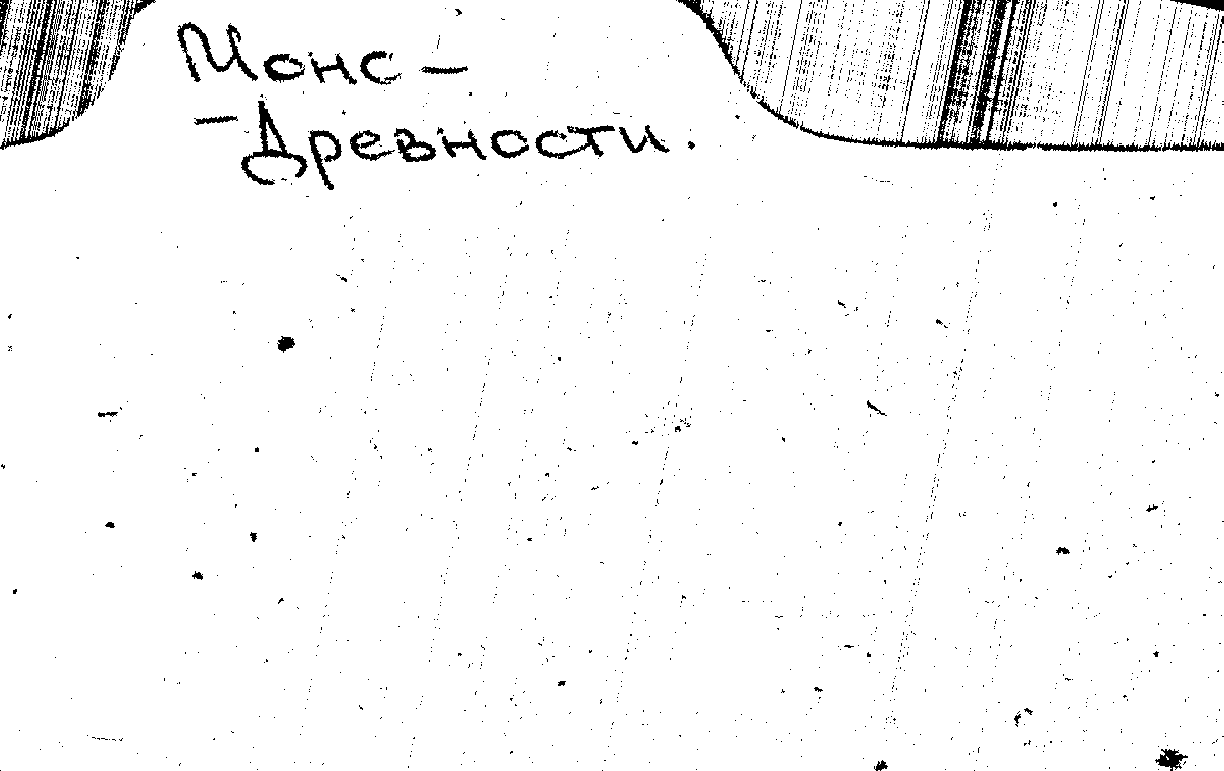 Монс –
– Древности.